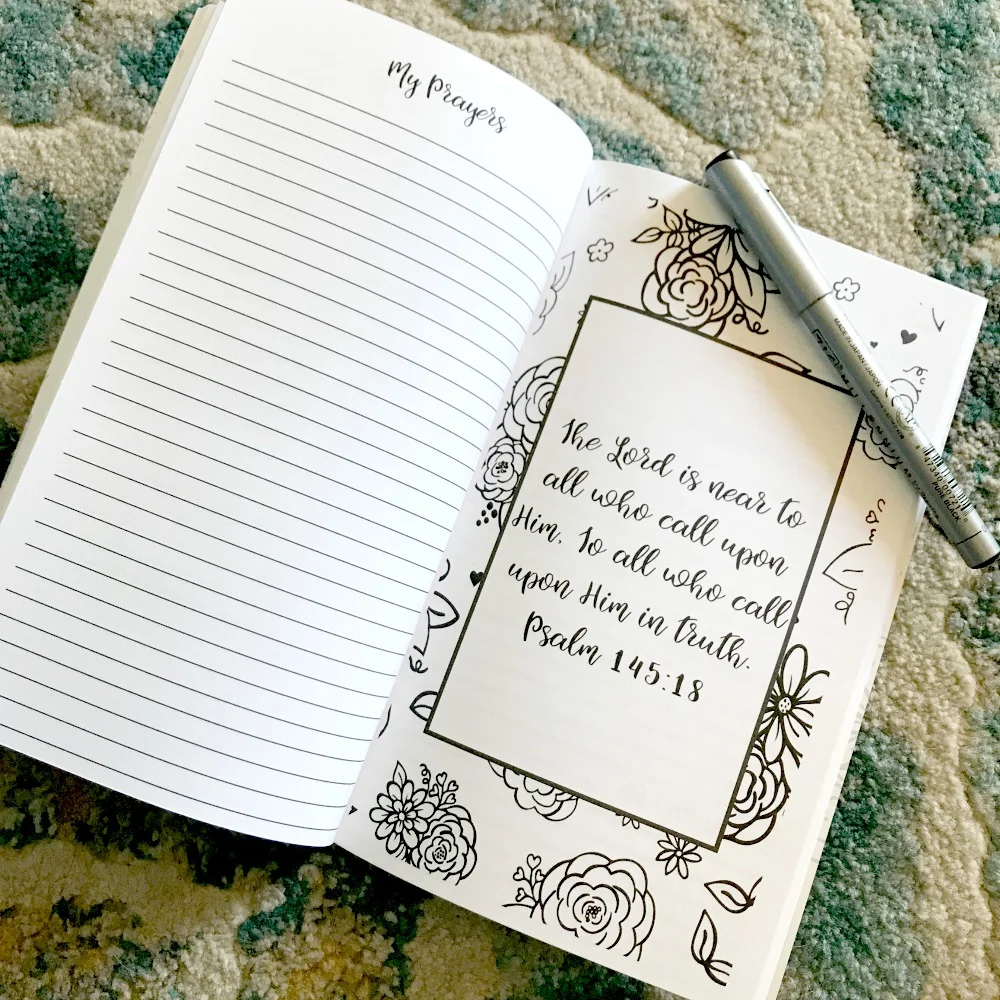 My Prayers
The Lord is near to
all who call upon
Him, To all who call
upon Him in truth.
Psalm 145:18
MADE IN JAPAN/JAPON
PURE BLACK